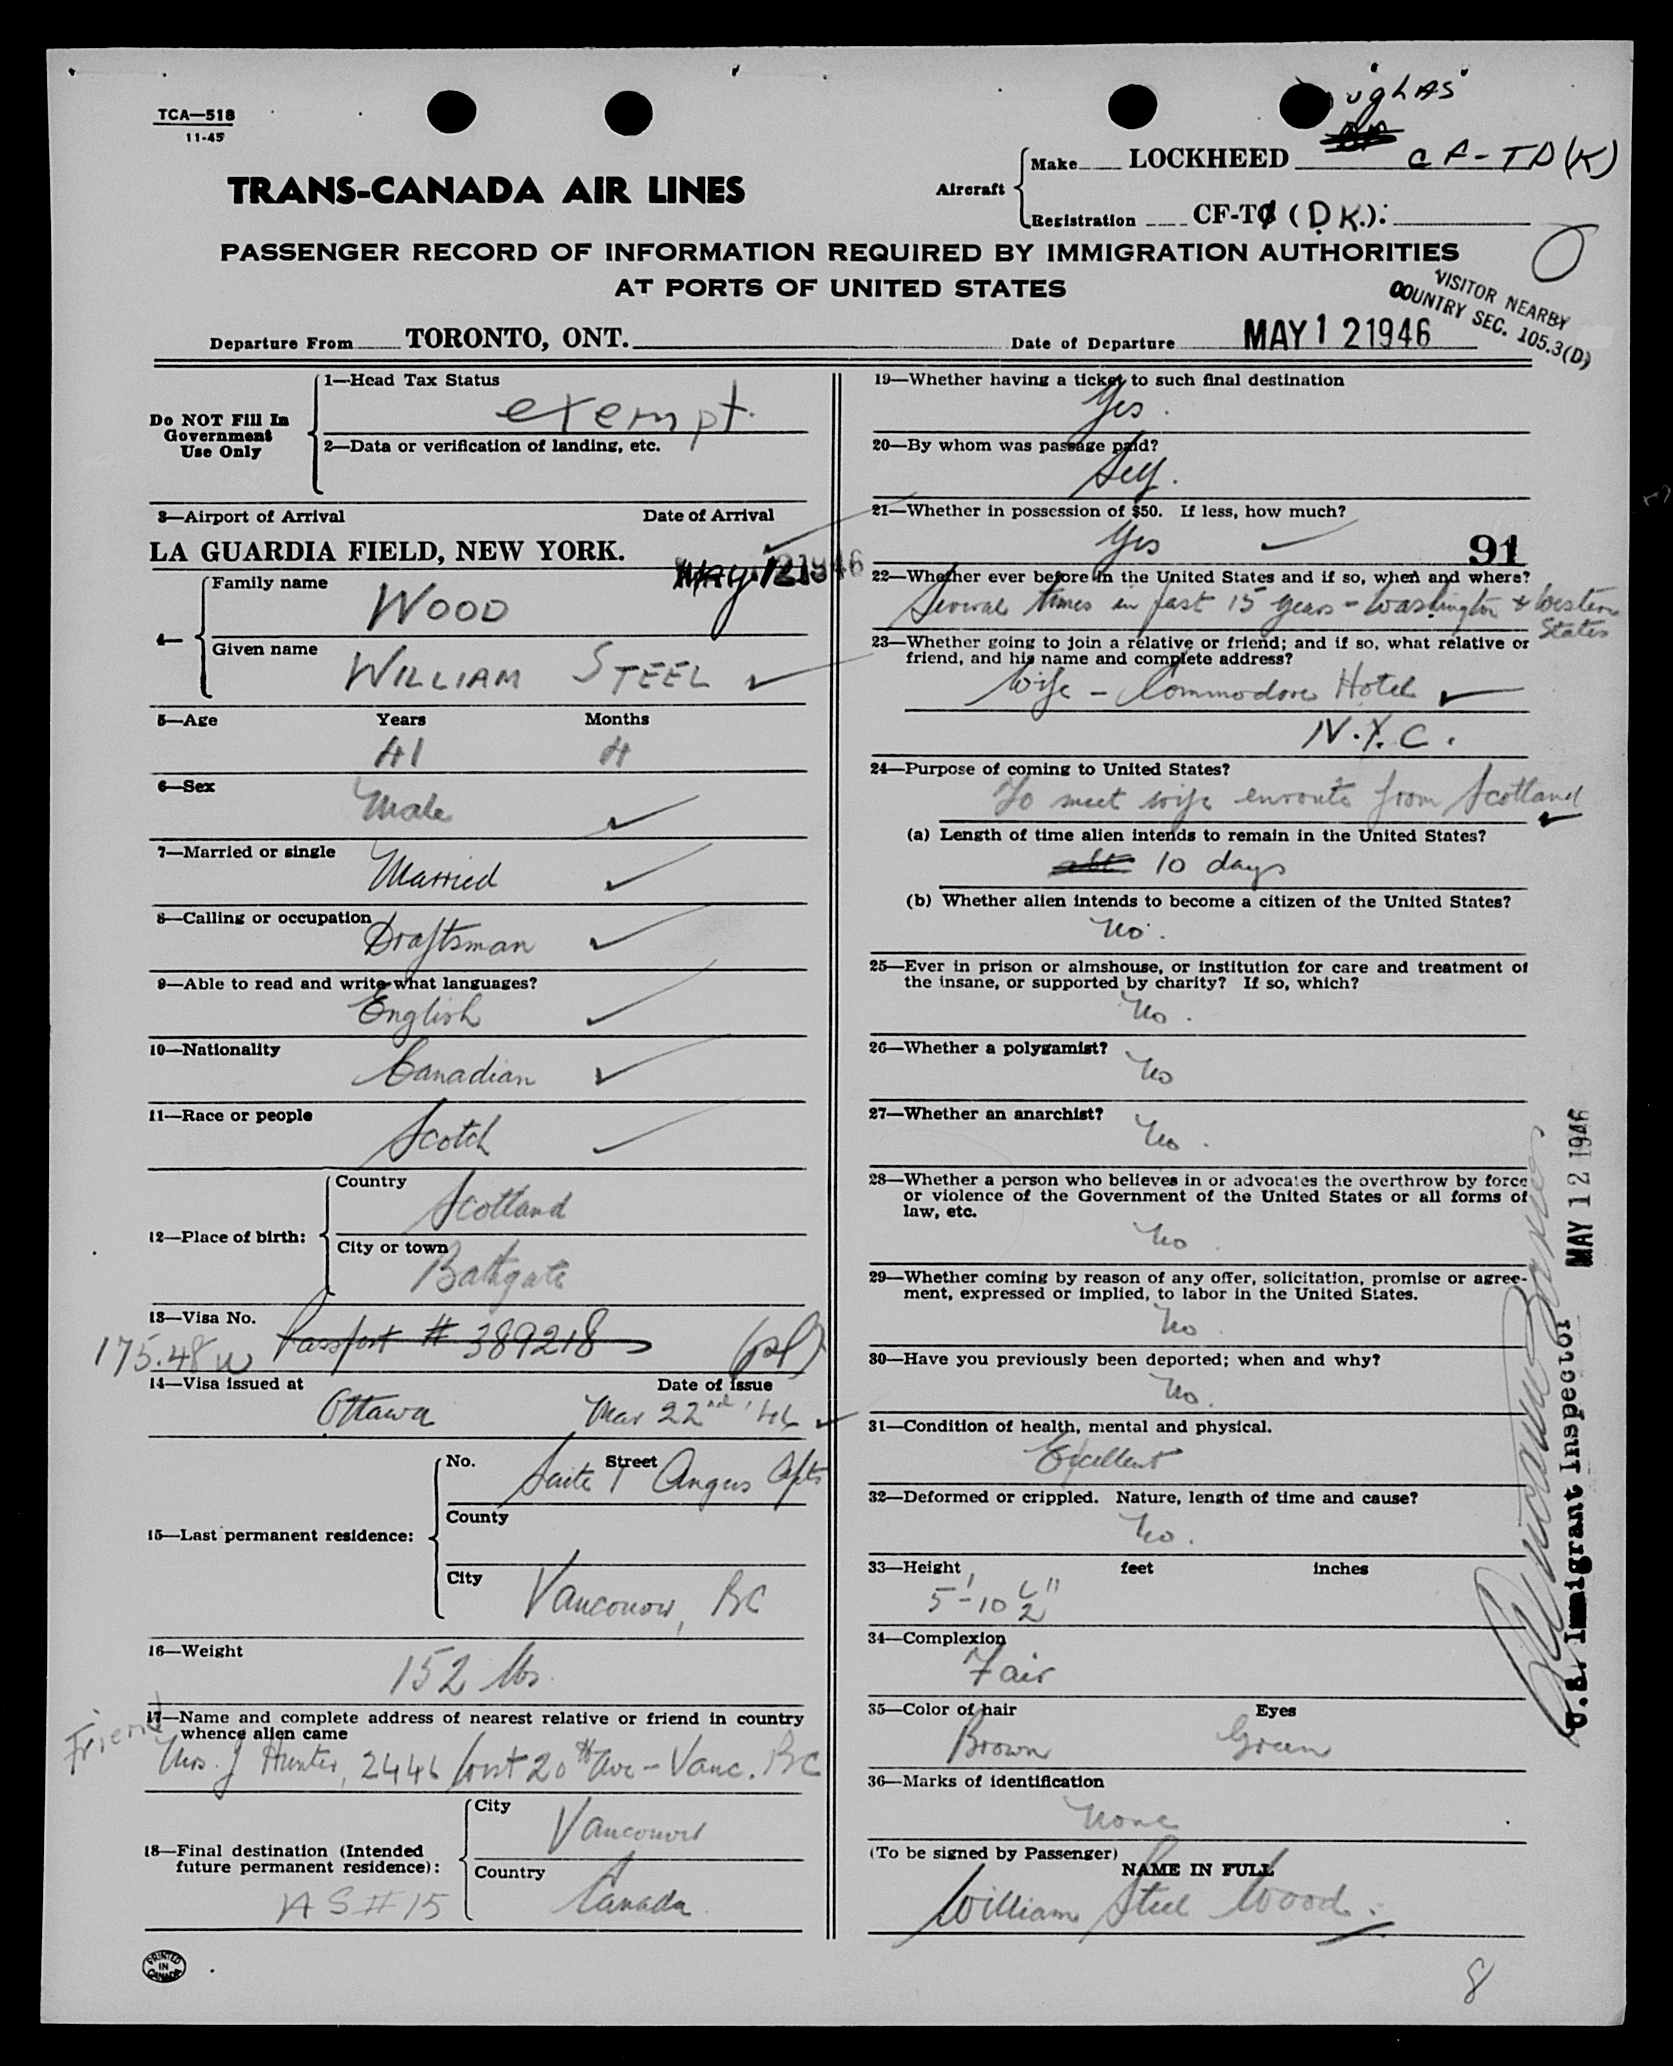 TCA—518
11-45
TRANS-CANADA AIR LINES
Aircraft
Make LOCKHEED CF-TD(K)
Registration CF-T (DK.):
PASSENGER RECORD OF INFORMATION REQUIRED BY IMMIGRATION AUTHORITIES
AT PORTS OF UNITED STATES
VISITOR NEARBY
COUNTRY SEC. 105.3(D)
Departure From TORONTO, ONT.
Date of Departure MAY 12 1946
Do NOT Fill In
Government
Use Only
1—Head Tax Status
exempt.
2—Data or verification of landing, etc.
3—Airport of Arrival Date of Arrival
LA GUARDIA FIELD, NEW YORK. MAY 12 1946
4—
Family name
WOOD
Given name
WILLIAM STEEL
5—Age Years Months
41 4
6—Sex
Male
7—Married or single
Married
8—Calling or occupation
Draftsman
9—Able to read and write what languages?
English
10—Nationality
Canadian
11—Race or people
Scotch
12—Place of birth:
Country
Scotland
City or town
Bathgate
13—Visa No.
175.48 Passport # 389218
14—Visa issued at Date of issue
Ottawa Mar 22nd '46
15—Last permanent residence:
No. Street
Suite 1 Angus Apts
County
City
Vancouver, BC
16—Weight
152 lbs.
17—Name and complete address of nearest relative or friend in country
whence alien came
Friend
Mrs. J Hunter, 2446 West 20th Ave – Vanc. BC
18—Final destination (Intended
future permanent residence):
City
Vancouver
Country
Canada
AS#15
PRINTED
IN
CANADA
19—Whether having a ticket to such final destination
Yes.
20—By whom was passage paid?
Self.
21—Whether in possession of $50. If less, how much?
Yes
91
22—Whether ever before in the United States and if so, when and where?
Several times in past 15 years – Washington & Western
States
23—Whether going to join a relative or friend; and if so, what relative or
friend, and his name and complete address?
Wife – Commodore Hotel
N.Y.C.
24—Purpose of coming to United States?
To meet wife enroute from Scotland
(a) Length of time alien intends to remain in the United States?
abt 10 days
(b) Whether alien intends to become a citizen of the United States?
No.
25—Ever in prison or almshouse, or institution for care and treatment of
the insane, or supported by charity? If so, which?
No.
26—Whether a polygamist?
No
27—Whether an anarchist?
No.
28—Whether a person who believes in or advocates the overthrow by force
or violence of the Government of the United States or all forms of
law, etc.
No.
29—Whether coming by reason of any offer, solicitation, promise or agree-
ment, expressed or implied, to labor in the United States.
No.
30—Have you previously been deported; when and why?
No.
31—Condition of health, mental and physical.
Excellent
32—Deformed or crippled. Nature, length of time and cause?
No.
33—Height feet inches
5'-10 1/2"
34—Complexion
Fair
35—Color of hair Eyes
Brown Green
36—Marks of identification
None
(To be signed by Passenger)
NAME IN FULL
William Steel Wood.
8
MAY 12 1946
U.S. Immigrant Inspector